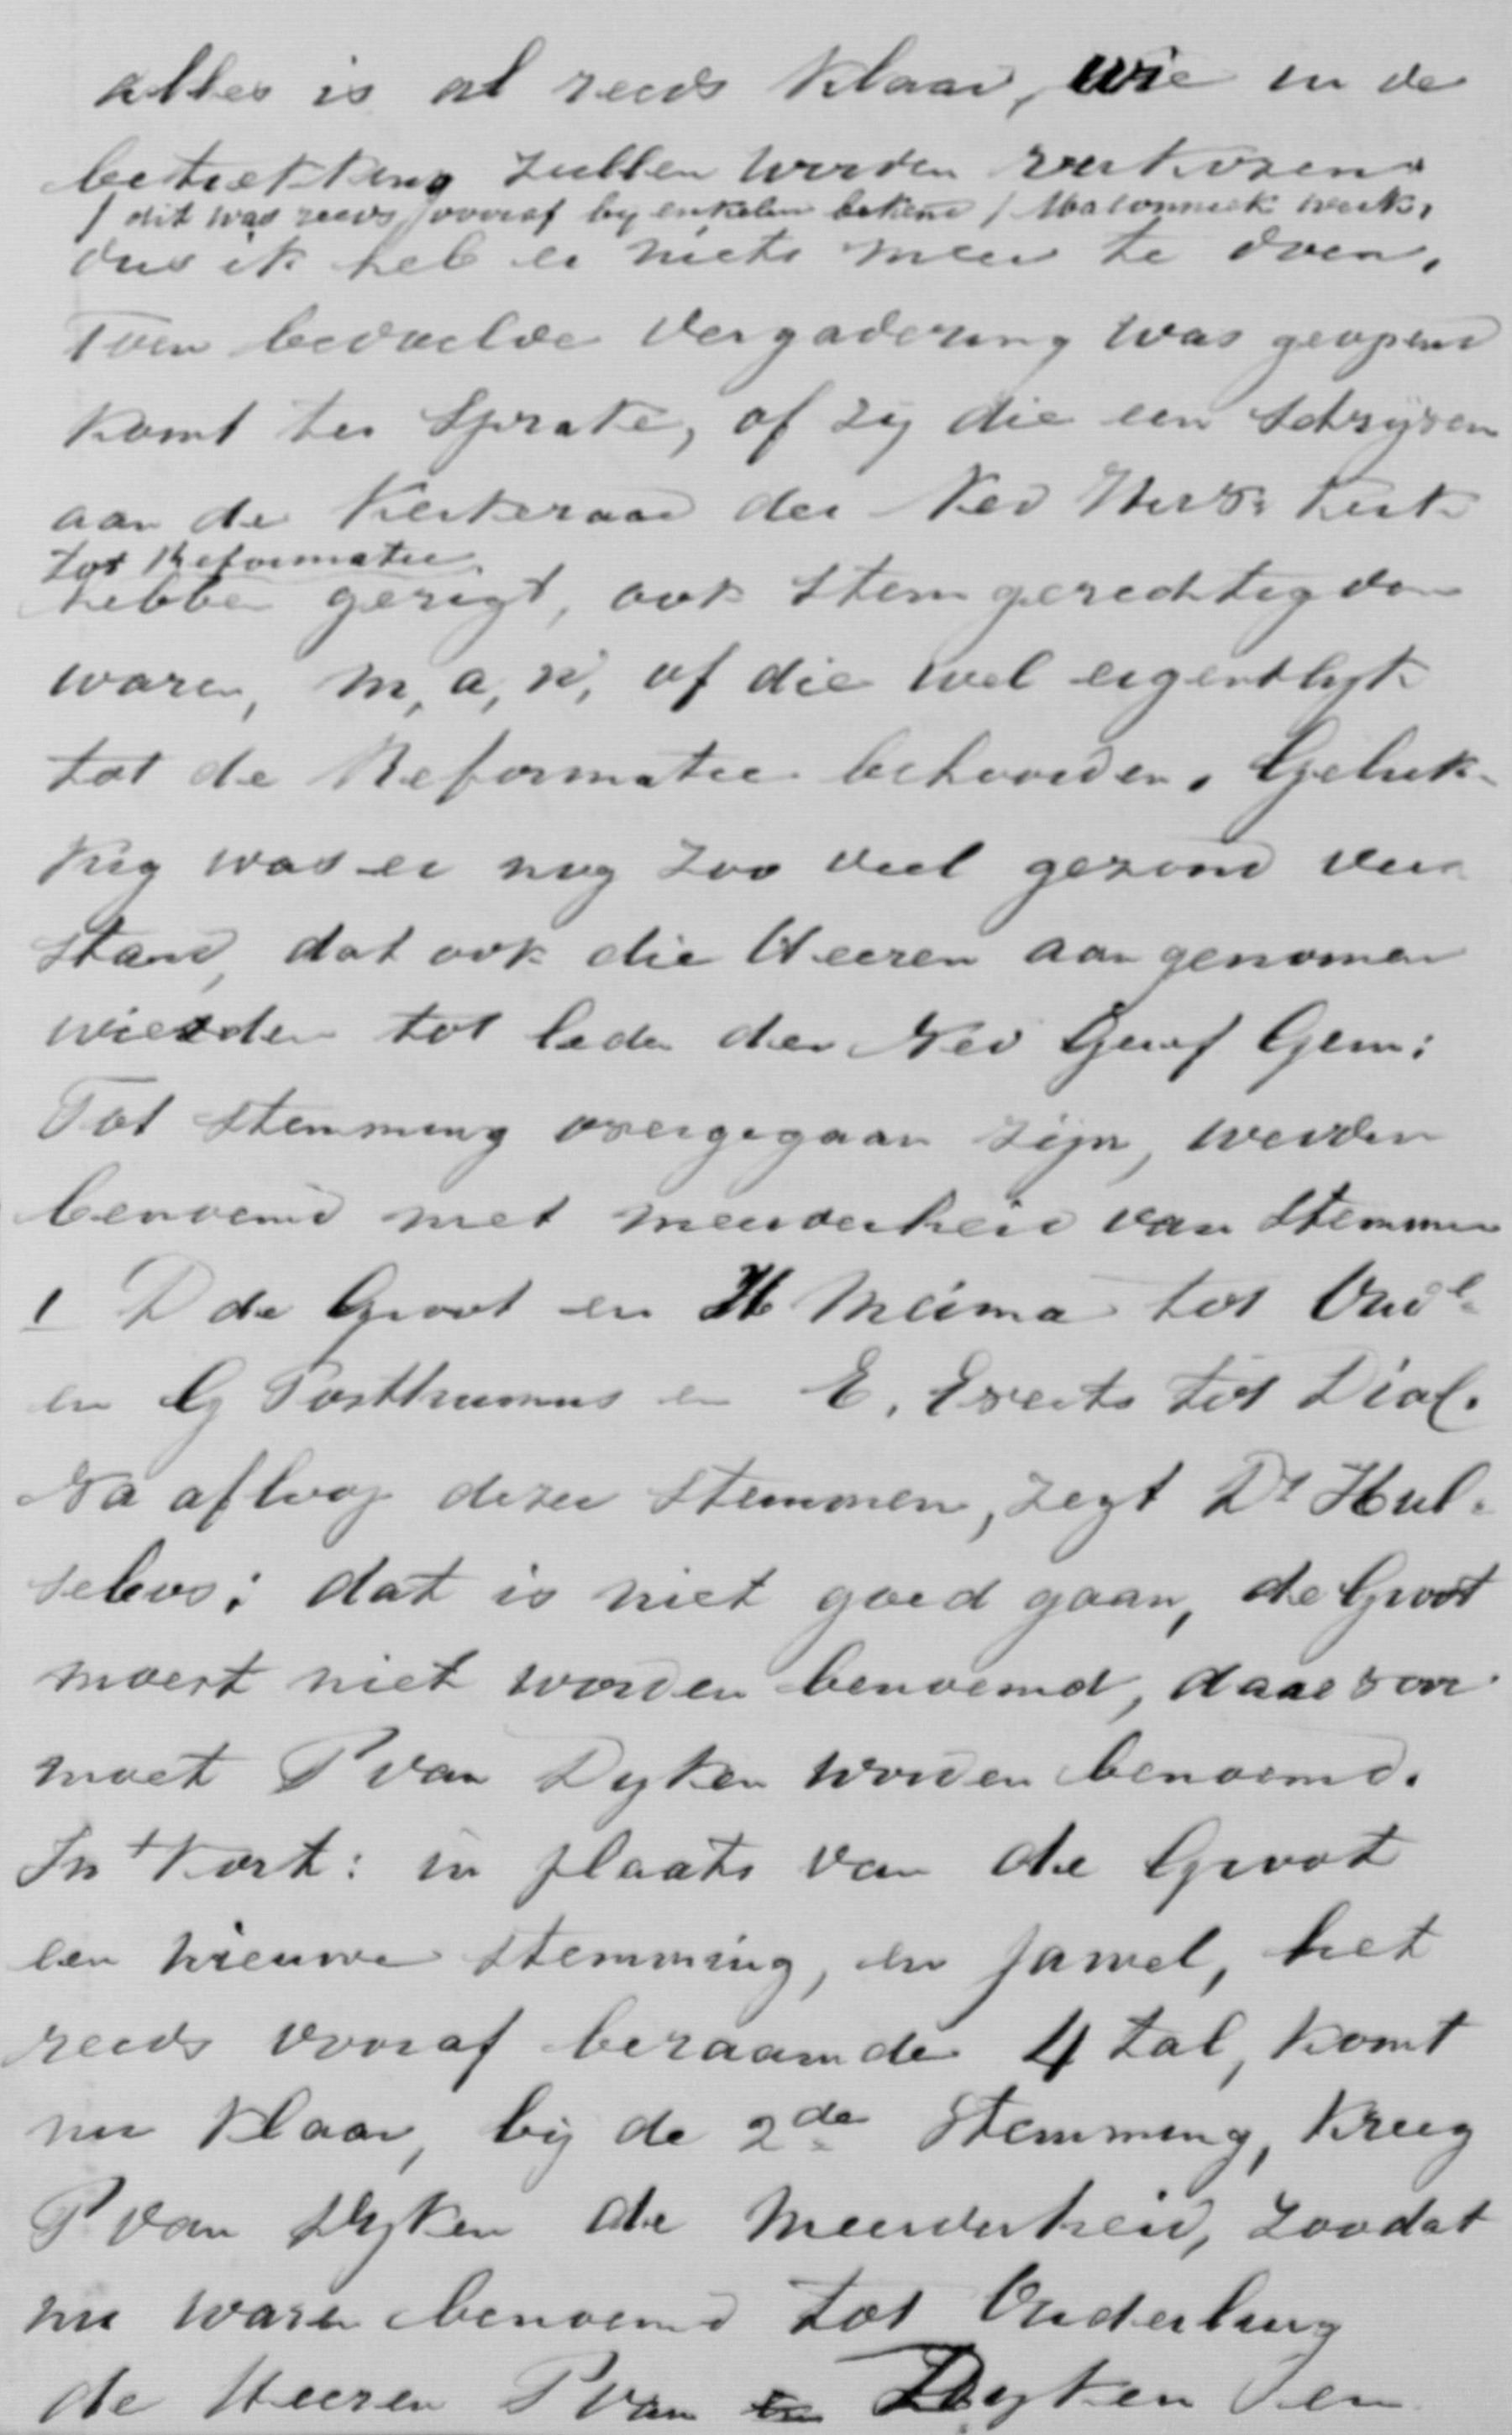 alles is al reeds klaar, wie in de
betrekking zullen worden verkozen.
/ dit was reeds vooraf by enkelen bekend / Masonniek werk,
dus ik heb er niets meer te doen.
Toen bedoelde Vergadering was geopend
komt ter sprake, of zy die een schryven
aan de Kerkeraad der Ned Herv: Kerk
tot Reformatie
hebben gerigt, ook stemgerechtigden
waren, m, a, w, of die wel eigentlyk
tot de Reformatie behoorden. Geluk-
kig was er nog zoo veel gezond ver-
stand, dat ook die Heeren aangenomen
wierden tot leden der Ned Geref Gem:
Tot stemming overgegaan zijn, werden
benoemd met meerderheid van stemmen
1 D de Groot en H Meima tot Oudl.
en G Posthumus en E. Everts tot Diak.
Na afloop dezer stemmen, zegt Ds Hul-
sebos: dat is niet goed gaan, de Groot
moest niet worden benoemd, daarvoor
moet P van Dyken worden benoemd.
In 't kort: in plaats van de Groot
een nieuwe stemming, en jawel, het
reeds vooraf beraamde 4 tal, komt
nu klaar, bij de 2de stemming, kreeg
P van Dyken de meerderheid, zoodat
nu waren benoemd tot Ouderling
de Heeren P van Dyken en